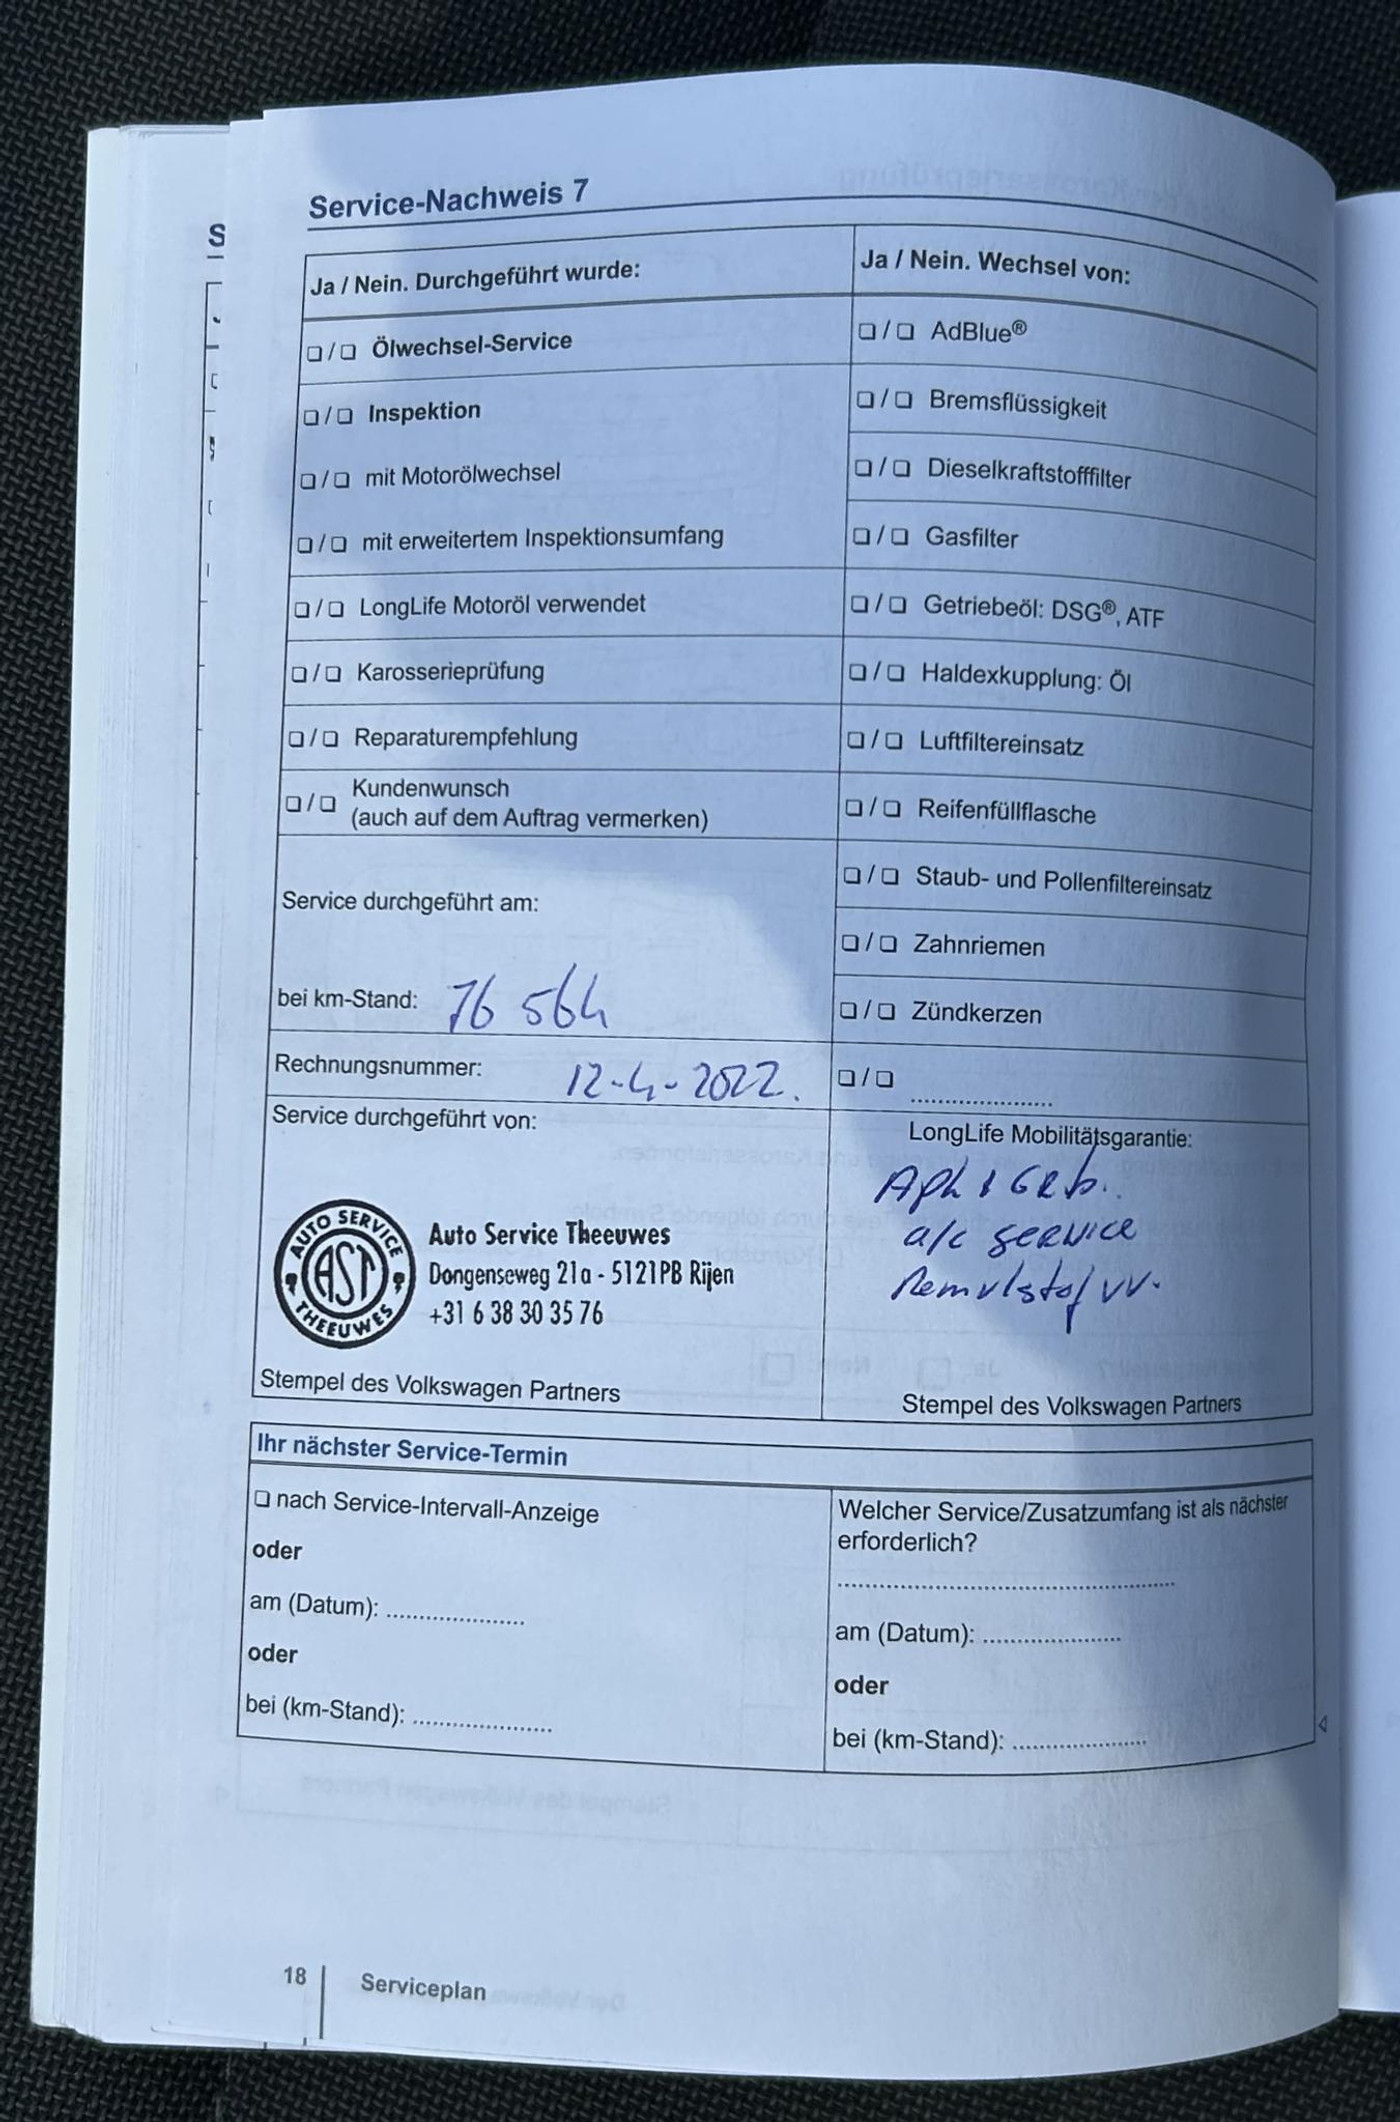 Service-Nachweis 7
S
Ja / Nein. Durchgeführt wurde:
❏ / ❏ Ölwechsel-Service
❏ / ❏ Inspektion
❏ / ❏ mit Motorölwechsel
❏ / ❏ mit erweitertem Inspektionsumfang
❏ / ❏ LongLife Motoröl verwendet
❏ / ❏ Karosserieprüfung
❏ / ❏ Reparaturempfehlung
❏ / ❏ Kundenwunsch
(auch auf dem Auftrag vermerken)
Service durchgeführt am:
bei km-Stand: 76 564
Rechnungsnummer: 12-4-2022.
Service durchgeführt von:
AUTO SERVICE
AST
THEEUWES
Auto Service Theeuwes
Dongenseweg 21a - 5121PB Rijen
+31 6 38 30 35 76
Stempel des Volkswagen Partners
Ja / Nein. Wechsel von:
❏ / ❏ AdBlue®
❏ / ❏ Bremsflüssigkeit
❏ / ❏ Dieselkraftstofffilter
❏ / ❏ Gasfilter
❏ / ❏ Getriebeöl: DSG®, ATF
❏ / ❏ Haldexkupplung: Öl
❏ / ❏ Luftfiltereinsatz
❏ / ❏ Reifenfüllflasche
❏ / ❏ Staub- und Pollenfiltereinsatz
❏ / ❏ Zahnriemen
❏ / ❏ Zündkerzen
❏ / ❏ .....................
LongLife Mobilitätsgarantie:
Apk &
a/c service
Remvlstof vv.
Stempel des Volkswagen Partners
Ihr nächster Service-Termin
❏ nach Service-Intervall-Anzeige
oder
am (Datum): .....................
oder
bei (km-Stand): .....................
Welcher Service/Zusatzumfang ist als nächster
erforderlich?
..................................................
am (Datum): .....................
oder
bei (km-Stand): .....................
18
Serviceplan